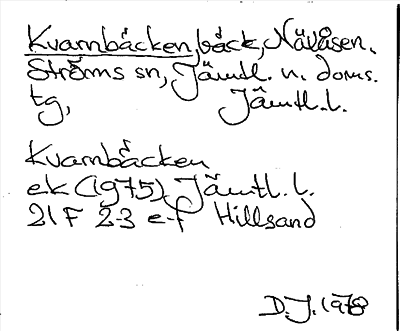 Kvarnbäcken, bäck, Nävåsen,
Ströms sn, Jämtl. n. doms.
tg, Jämtl. l.
Kvarnbäcken
ek (1975) Jämtl. l.
21F 2-3 e-f Hillsand
D.J. 1978